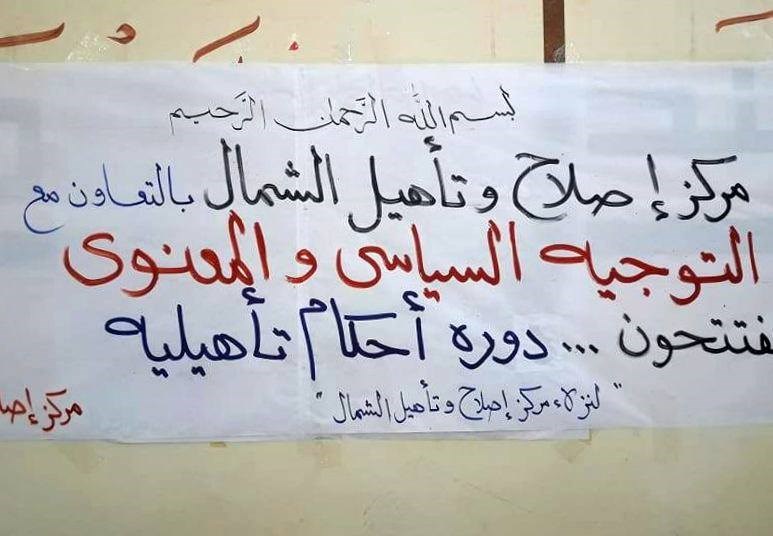 بسم الله الرَّحمان الرَّحيم
مركز إصلاح وتأهيل الشمال بالتعاون مع
التوجيه السياسى و المعنوى
يفتتحون ... دوره أحكام تأهيليه
" لنزلاء مركز إصلاح وتأهيل الشمال "
مركز إصلا